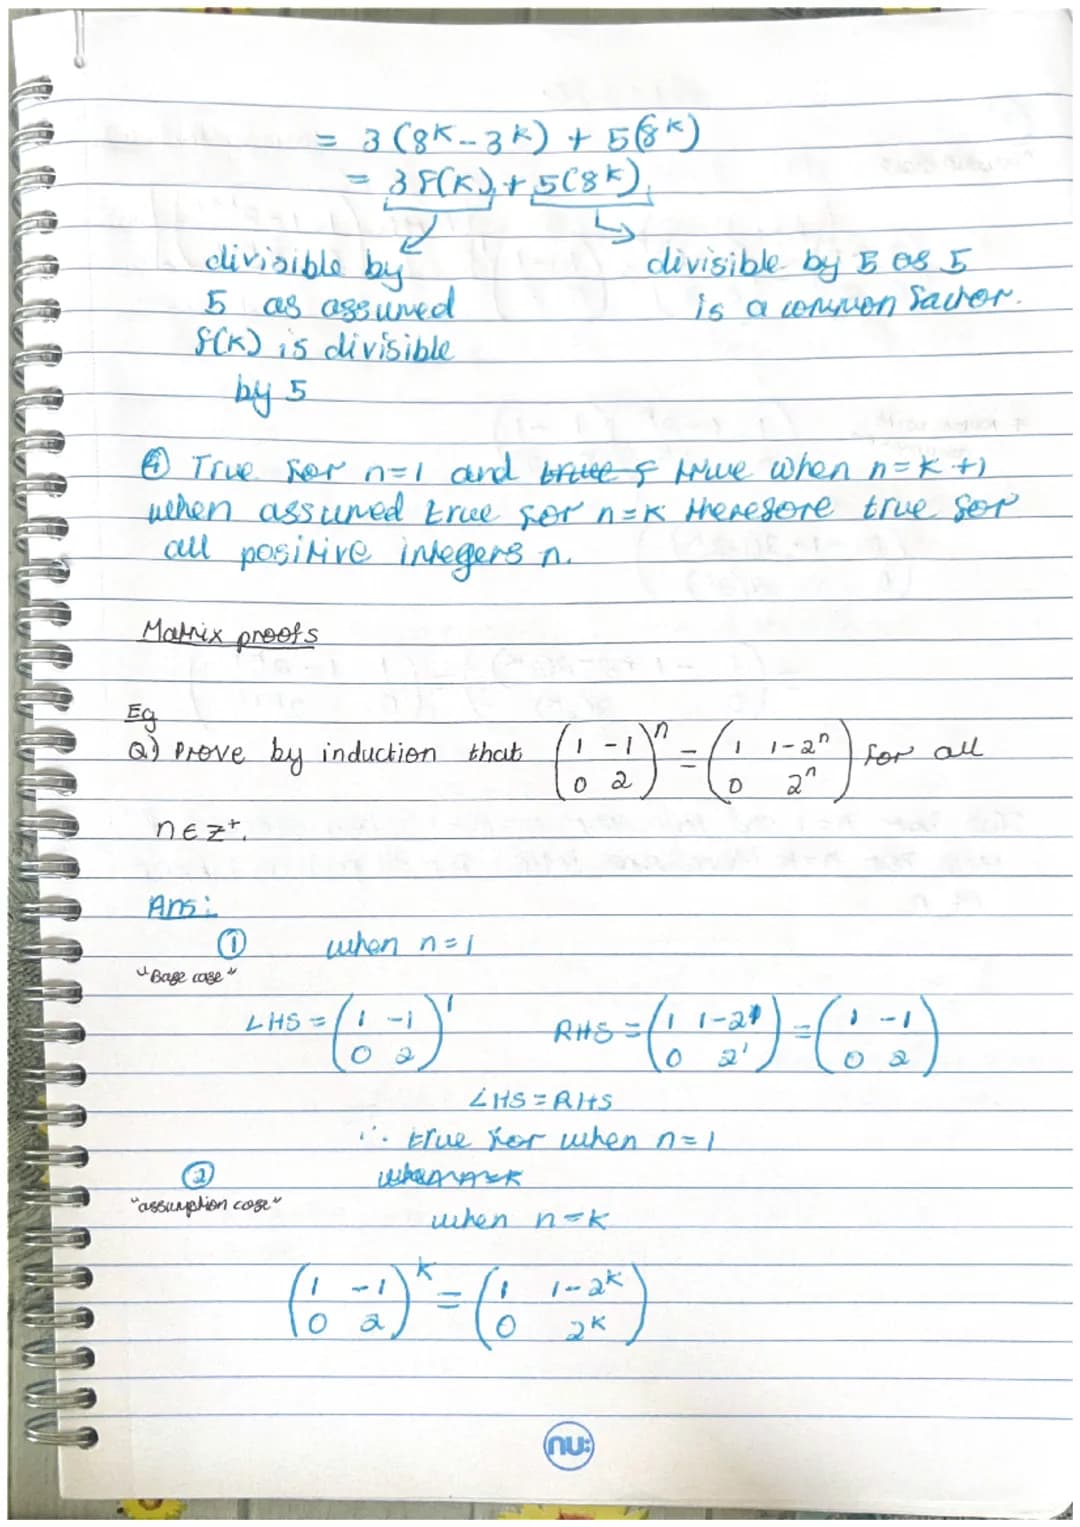 = 3(8^k - 3^k) + 5(8^k)
= 3f(k) + 5(8^k)
divisible by
5 as assumed
f(k) is divisible
by 5
divisible by 5 as 5
is a common factor.
④ True for n=1 and true f true when n=k+1
when assumed true for n=k therefore true for
all positive integers n.
Matrix proofs
Eg
Q) Prove by induction that (1 -1; 0 2)^n = (1 1-2^n; 0 2^n) for all
n ∈ Z⁺.
Ans:
① when n=1
"Base case"
LHS = (1 -1; 0 2)^1 RHS = (1 1-2^1; 0 2^1) = (1 -1; 0 2)
LHS = RHS
∴ true for when n=1
② when n=k
"assumption case"
when n=k
(1 -1; 0 2)^k = (1 1-2^k; 0 2^k)
nu: